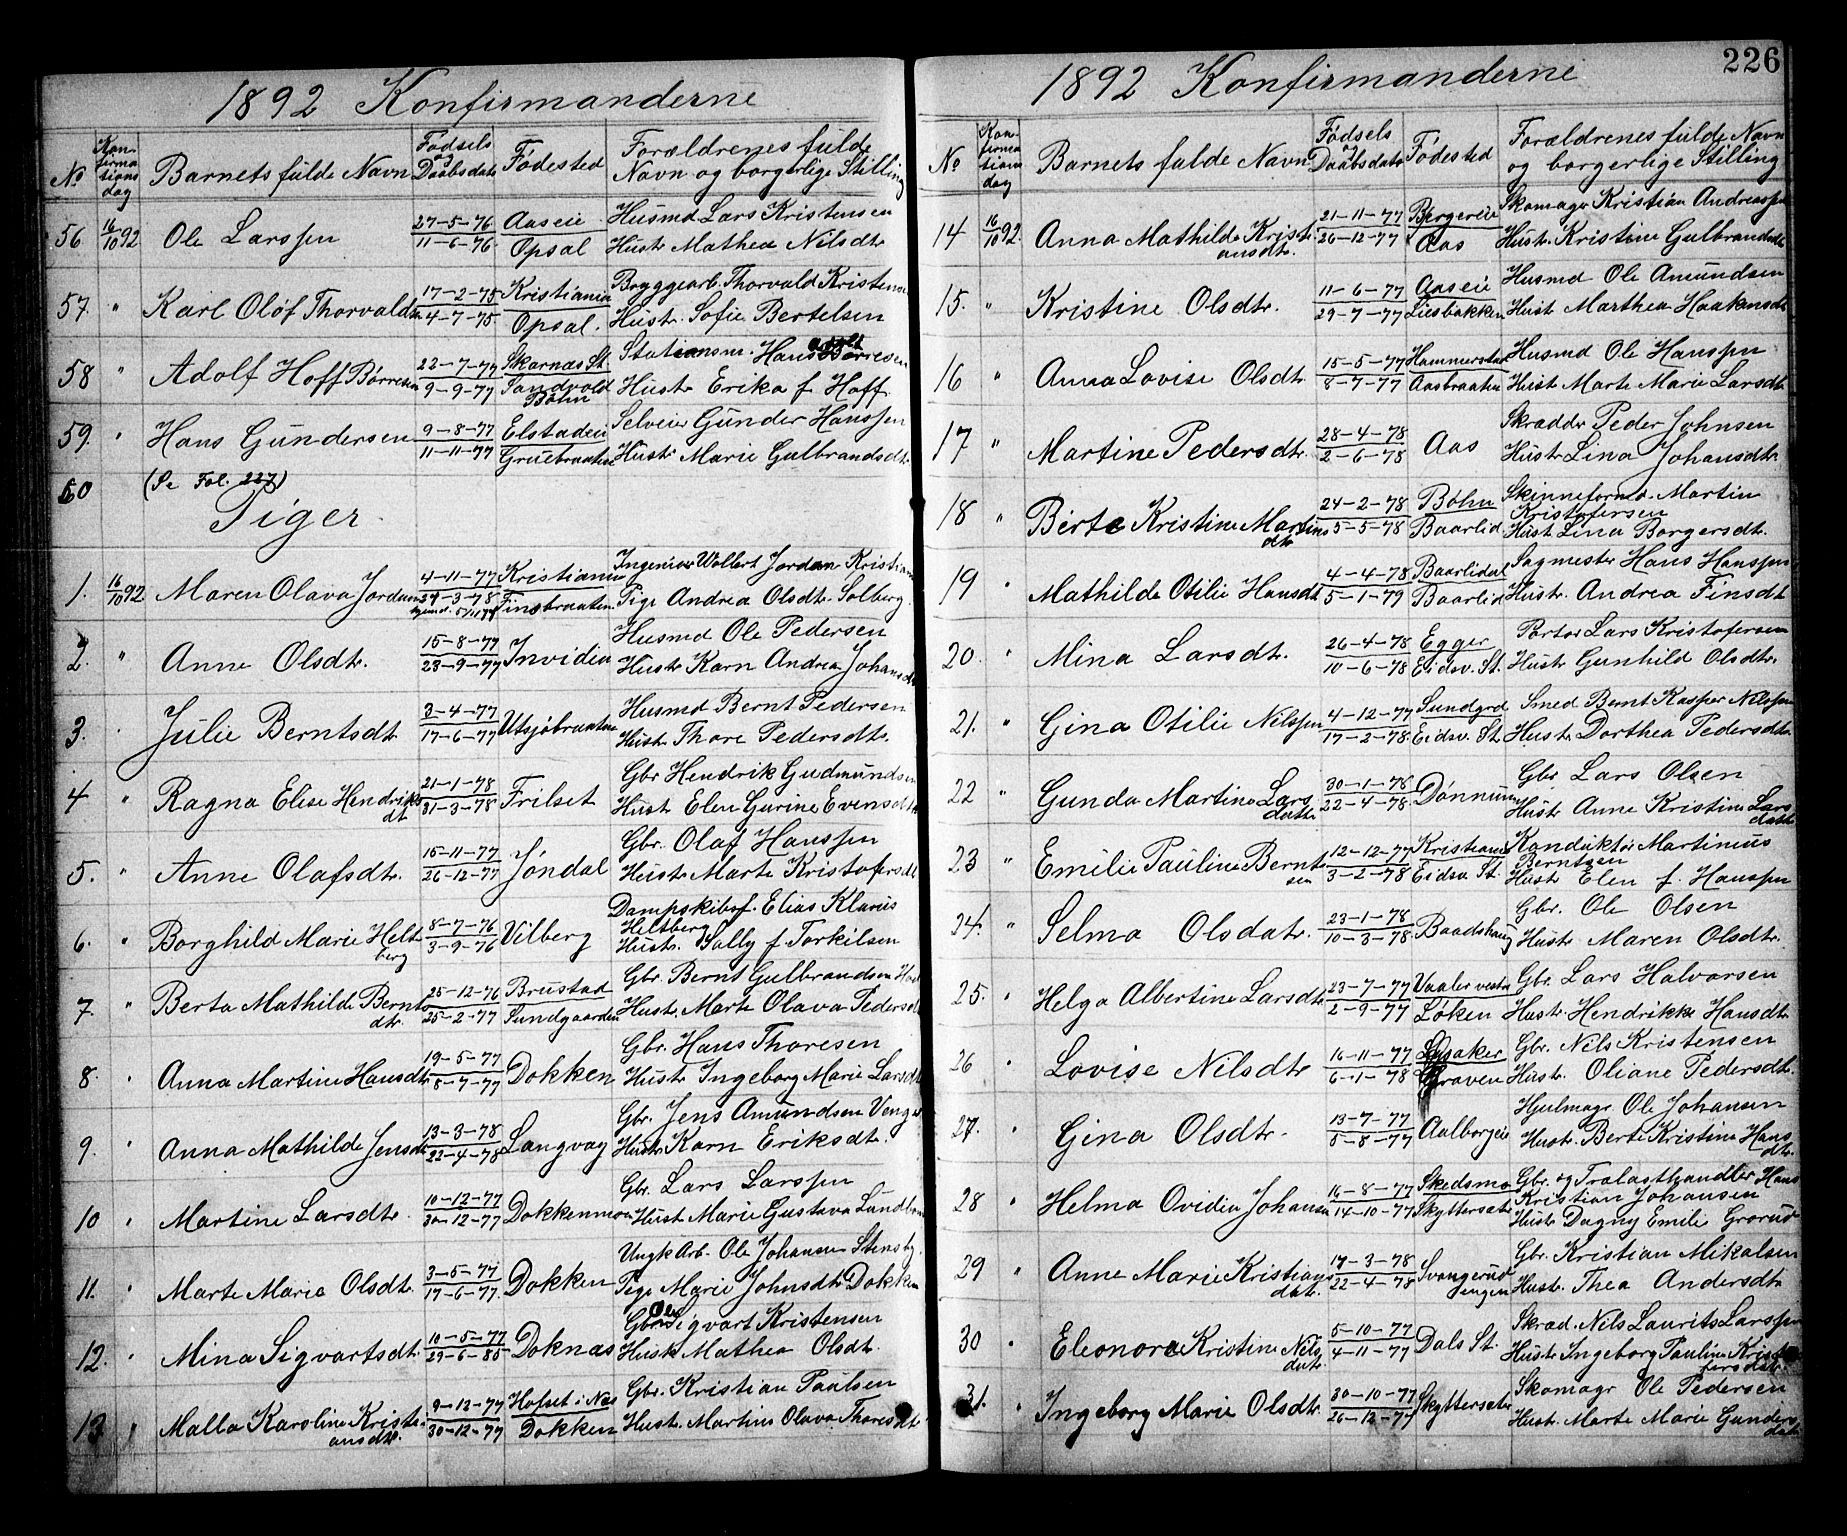 1892 Konfirmanderne
No Konfirmationsdag Barnets fulde Navn Fødsels og Daabsdato Fødested Forældrenes fulde Navn og borgerlige Stilling
56 16/10 92 Ole Larssen 27-5-76 11-6-76 Aaseie Opsal Husmd Lars Kristensen Hustr. Mathea Nilsdtr
57. " Karl Olof Thorvalds 17-2-75 4-7-75 Kristiania Opsal. Bryggearb. Thorvald Kristensen Hustr. Sofie Bertelsen
58 " Adolf Hoff Børresen 22-7-77 9-9-77 Skarnæs St. Sandvold Bøhn Stationsm. Hans Børresen Hustr Erika f Hoff
59. " Hans Gundersen 9-8-77 11-11-77 Elstadeie Gruebraaten Selveier Gunder Hanssen Hustr Marie Gulbrandsdtr
60 (Se Fol. 227)
Piger
1. 16/10 92 Maren Olava Jordan 4-11-77 24-3-78 Kristiania Finsbraaten Ingeniør Wollert Jordan Kristiania Pige Andrea Olsdtr. Solberg
2. " Anne Olsdtr. 15-8-77 23-9-77 Invidia Husmd Ole Pedersen Hustr Karn Andrea Johansdtr
3. " Julie Berntsdtr 3-4-77 17-6-77 Utsjøbraaten Husmd Bernt Pedersen Hustr Thore Pedersdtr.
4 " Ragna Elise Hendriksdt 21-1-78 31-3-78 Frilset Gbr Hendrik Gudmundsen Hust Elen Gurine Evensdtr
5. " Anne Olafsdtr. 15-11-77 26-12-77 Jøndal Gbr. Olaf Hanssen Hustr Marte Kristofersdt
6. " Borghild Marie Heltberg 8-7-76 3-9-76 Vilberg Dampskibsf. Elias Klarus Heltberg Hustr. Sally f Torkilsen
7. " Berta Mathilde Berntsdtr. 25-12-76 25-2-77 Brustad Sundgaarden Gbr. Bernt Gulbrandsen Hustr. Marte Olava Pedersdt
8. " Anna Martine Hansdtr 19-5-77 8-7-77 Dokken Gbr. Hans Thoresen Hustr Ingeborg Marie Larsdt
9. " Anna Mathilde Jensdt 13-3-78 22-4-78 Langvag Gbr. Jens Amundsen Venger Hustr Karn Eriksdtr.
10 " Martine Larsdtr. 10-12-77 30-12-77 Dokkenmoen Gbr. Lars Larssen Hust Marie Gustava Lundbom
11. " Marte Marie Olsdtr. 3-5-77 17-6-77. Dokken Ungk Arb. Ole Johansen Stensby. Pige Marie Johnsdtr Dokken
12. " Mina Sigvartsdt. 10-5-77 29-6-85 Doknæs Gbr. Ole Sigvart Kristensen Hustr Mathea Olsdt.
13 " Malla Karoline Kristiansdtr. 9-12-77 30-12-77 Hofset i Næs Dokken Gbr. Kristian Paulsen Hustr. Martine Olava Thoresdt
226
1892 Konfirmanderne
No Konfirmationsdag Barnets fulde Navn Fødsels og Daabsdato Fødested Forældrenes fulde Navn og borgerlige Stilling
14 16/10 92. Anna Mathilde Kristiansdtr. 21-11-77 26-12-77 Børgereie Aas Skomager Kristian Andreassen Hustr. Kristine Gulbrandsdtr
15. " Kristine Olsdtr. 11-6-77 29-7-77 Aaseie Liesbakken Husmd Ole Amundsen Hustr Marthea Haakensdt
16 " Anna Lovise Olsdtr 15-5-77 8-7-77 Hammerstad Aasbraaten Husmd Ole Hanssen Hust Marte Marie Larsdtr
17 " Martine Pedersdtr. 28-4-78 2-6-78 Aas Skrædder Peder Johnsen Hustr Lina Johansdtr.
18 " Berte Kristine Martinsdtr 24-2-78 5-5-78 Bøhn Baarlid Skinneformd. Martin Kristofersen Hust Lina Borgersdt.
19 " Mathilde Otilie Hansdt 4-4-78 5-1-79 Baarlidal Baarlid Sagmester Hans Hanssen Hustr. Andrea Finsdt
20. " Mina Larsdtr. 26-4-78 10-6-78 Egger Eidsv. St. Portør Lars Kristofersen Hustr Gunhild Olsdtr.
21. " Gina Otilie Nilssen 4-12-77 17-2-78. Sundgrd Eidsv. St. Smed Bernt Kasper Nilssen Hustr Dorthea Pedersdtr
22 " Gunda Martine Larsdatter 30-1-78 22-4-78. Dønnum Gbr Lars Olsen Hustr Anne Kristine Larsdattr
23 " Emilie Pauline Berntsen 12-12-77 3-2-78 Kristiania Eidsv St. Konduktør Martinius Berntsen Hustr Elen f. Hanssen
24. " Selma Olsdatr. 23-1-78 10-3-78. Baadshaug Gbr. Ole Olsen Hustr Maren Olsdtr.
25. " Helga Albertine Larsdtr 23-7-77 2-9-77 Vaaler vestre Løken Gbr. Lars Halvorsen Hustr. Hendrikke Hansdt
26 " Lovise Nilsdtr 16-11-77 6-1-78 Lysaker Graven Gbr. Nils Kristensen Hustr. Oliane Pedersdt.
27. " Gina Olsdtr. 13-7-77 5-8-77 Aalborgeie Hjulmagr Ole Johansen Hustr. Berte Kristine Hansdtr.
28 " Helma Ovidia Johansen 16-8-77 14-10-77 Skedsmo Skyttersæter Gbr. og Trælasthandler Hans Kristian Johansen Hustr Dagny Emilie Grorud
29 " Anne Marie Kristiansdatr. 17-3-78 22-4-78 Svangerudengen Gbr. Kristian Mikalsen Hustr. Thea Andersdtr
30 " Eleonore Kristine Nilsdatr. 5-10-77 4-11-77 Dals St. Skræd. Nils Laurits Larssen Hustr Ingeborg Pauline Kristofersdatr
31. " Ingeborg Marie Olsdtr 30-10-77 26-12-77 Skyttersæter Skomagr Ole Pedersen Hustr. Marte Marie Gundersdatr